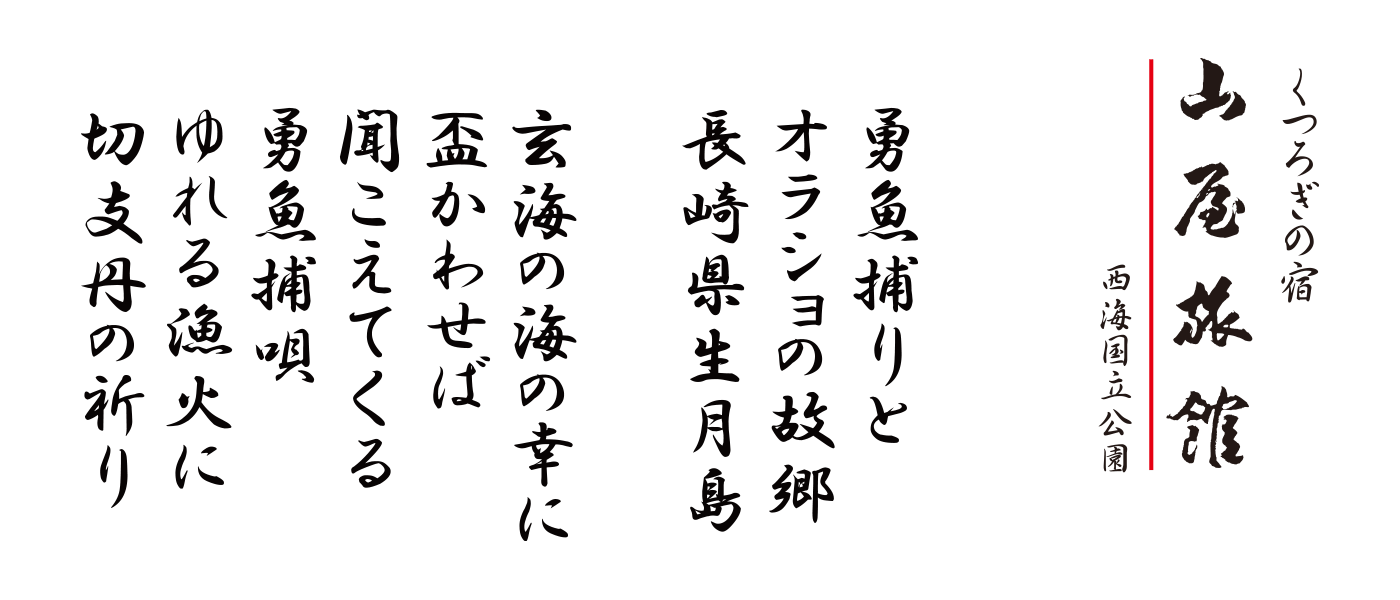 くつろぎの宿
山屋旅館
西海国立公園
勇魚捕りと
オラショの故郷
長崎県生月島
玄海の海の幸に
盃かわせば
聞こえてくる
勇魚捕唄
ゆれる漁火に
切支丹の祈り